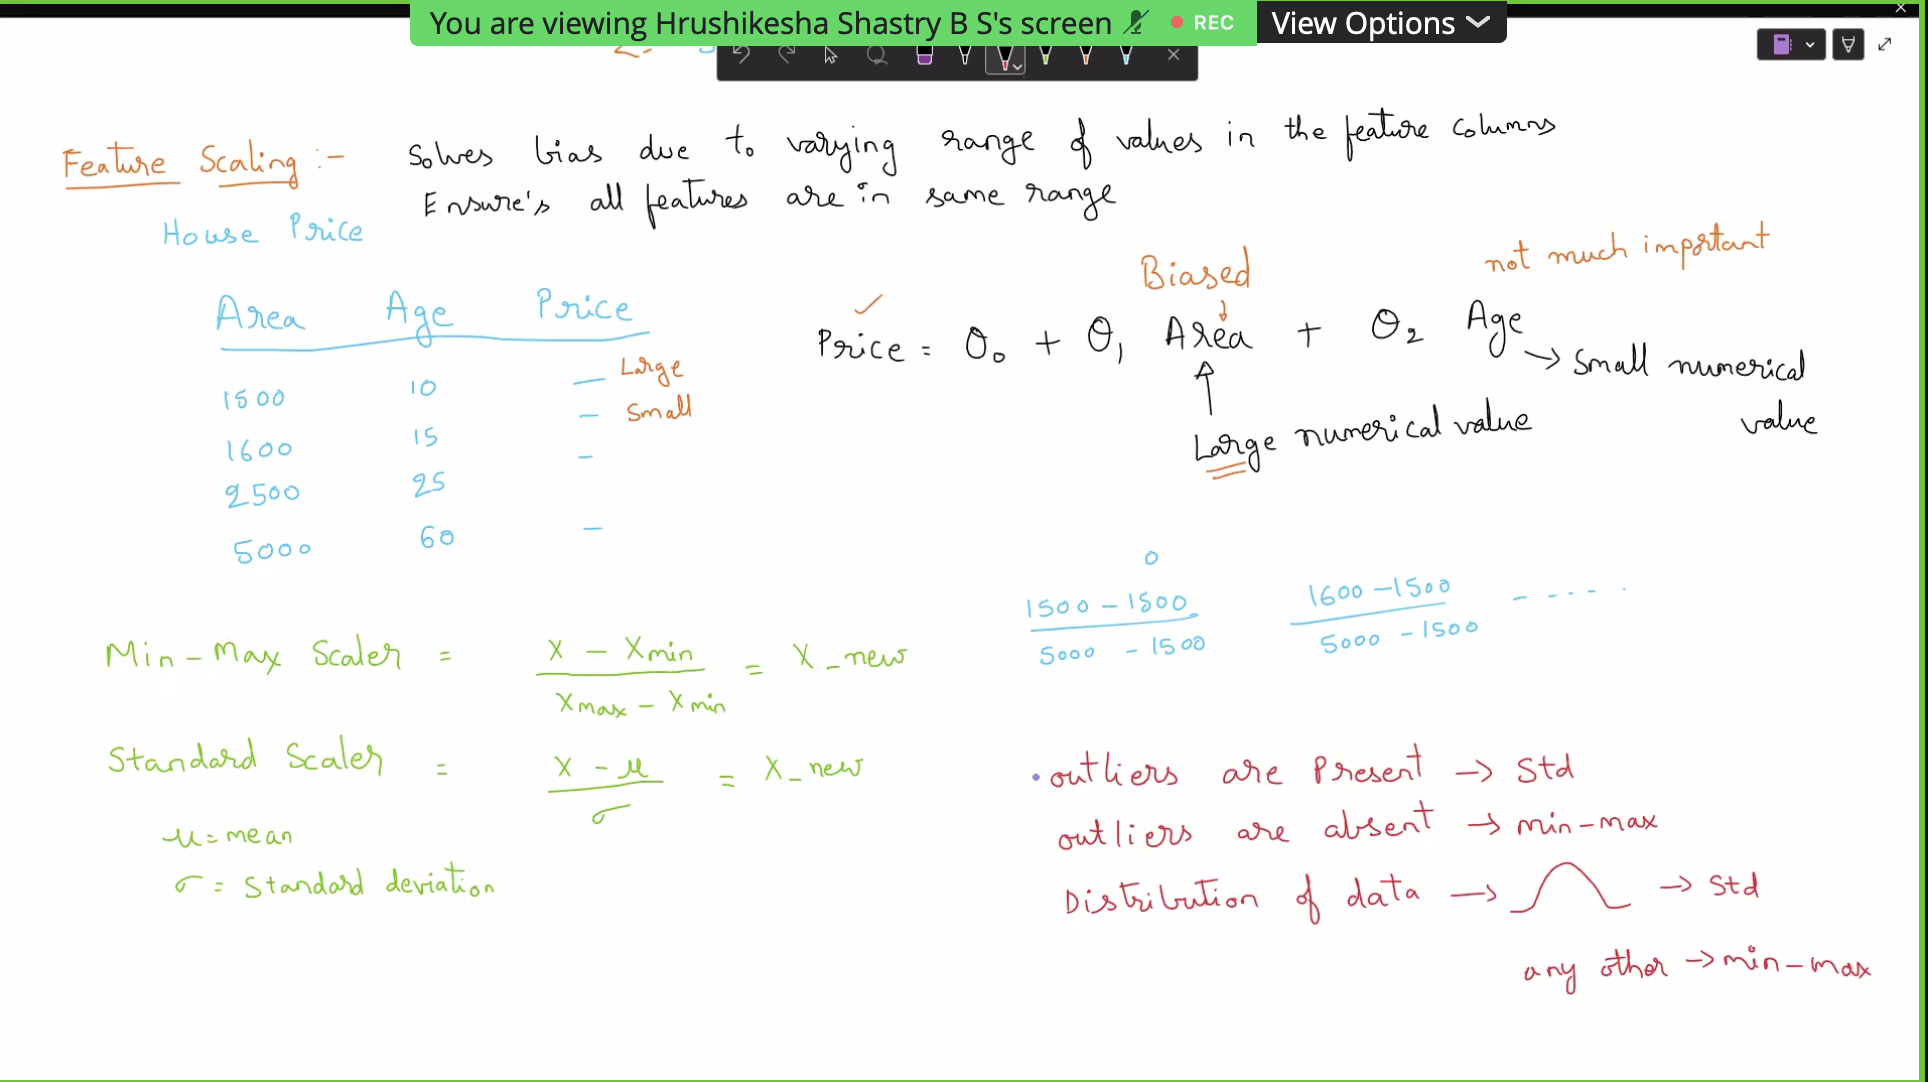 You are viewing Hrushikesha Shastry B S's screen REC View Options
Feature Scaling :- Solves bias due to varying range of values in the feature columns
Ensure's all features are in same range
House Price
Area Age Price
1500 10 — Large
1600 15 – Small
2500 25 –
5000 60 –
Biased
not much important
Price = θ₀ + θ₁ Area + θ₂ Age
→ Small numerical
value
Large numerical value
0
1500 – 1500
5000 – 1500
1600 – 1500
5000 – 1500
- - - - -
Min – Max Scaler = X – Xmin = X_new
Xmax – Xmin
Standard Scaler = X – μ = X_new
σ
μ = mean
σ = Standard deviation
• outliers are Present → Std
outliers are absent → min-max
Distribution of data → → Std
any other → min-max